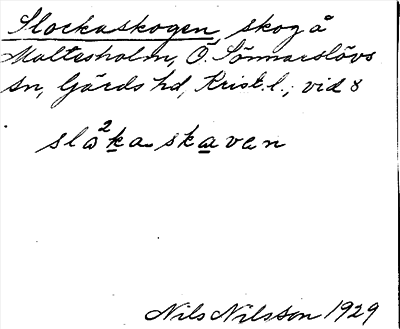 Slockaskogen, skog å
Maltesholm, Ö. Sönnarslövs
sn, Gärds hd, Krist. l.; vid 8
slo²ka skaven
Nils Nilsson 1929